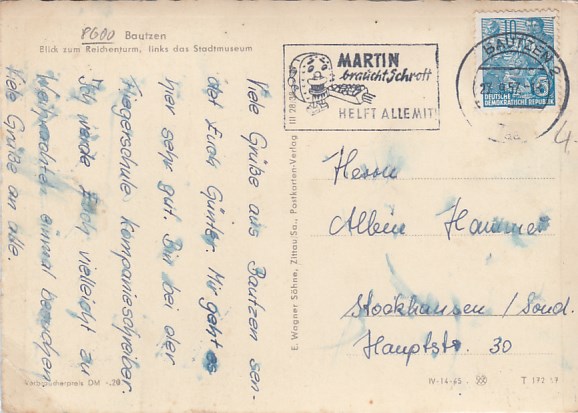 8600 Bautzen
Blick zum Reichenturm, links das Stadtmuseum
Viele Grüße aus Bautzen sen-
det Euch Günter. Mir geht es
hier sehr gut. Bin bei der
Fliegerschule Kompanieschreiber.
Ich werde Euch vielleicht zu
Weihnachten einmal besuchen.
Viele Grüße an alle.
Verbraucherpreis DM -.20
E. Wagner Söhne, Zittau/Sa., Postkarten-Verlag
MARTIN
braucht Schrott
HELFT ALLE MIT!
BAUTZEN 2
10
DEUTSCHE
DEMOKRATISCHE REPUBLIK
Herrn
Albin Hammer
Stockhausen / Sond.
Hauptstr. 30
IV-14-45
T 172 57
4-